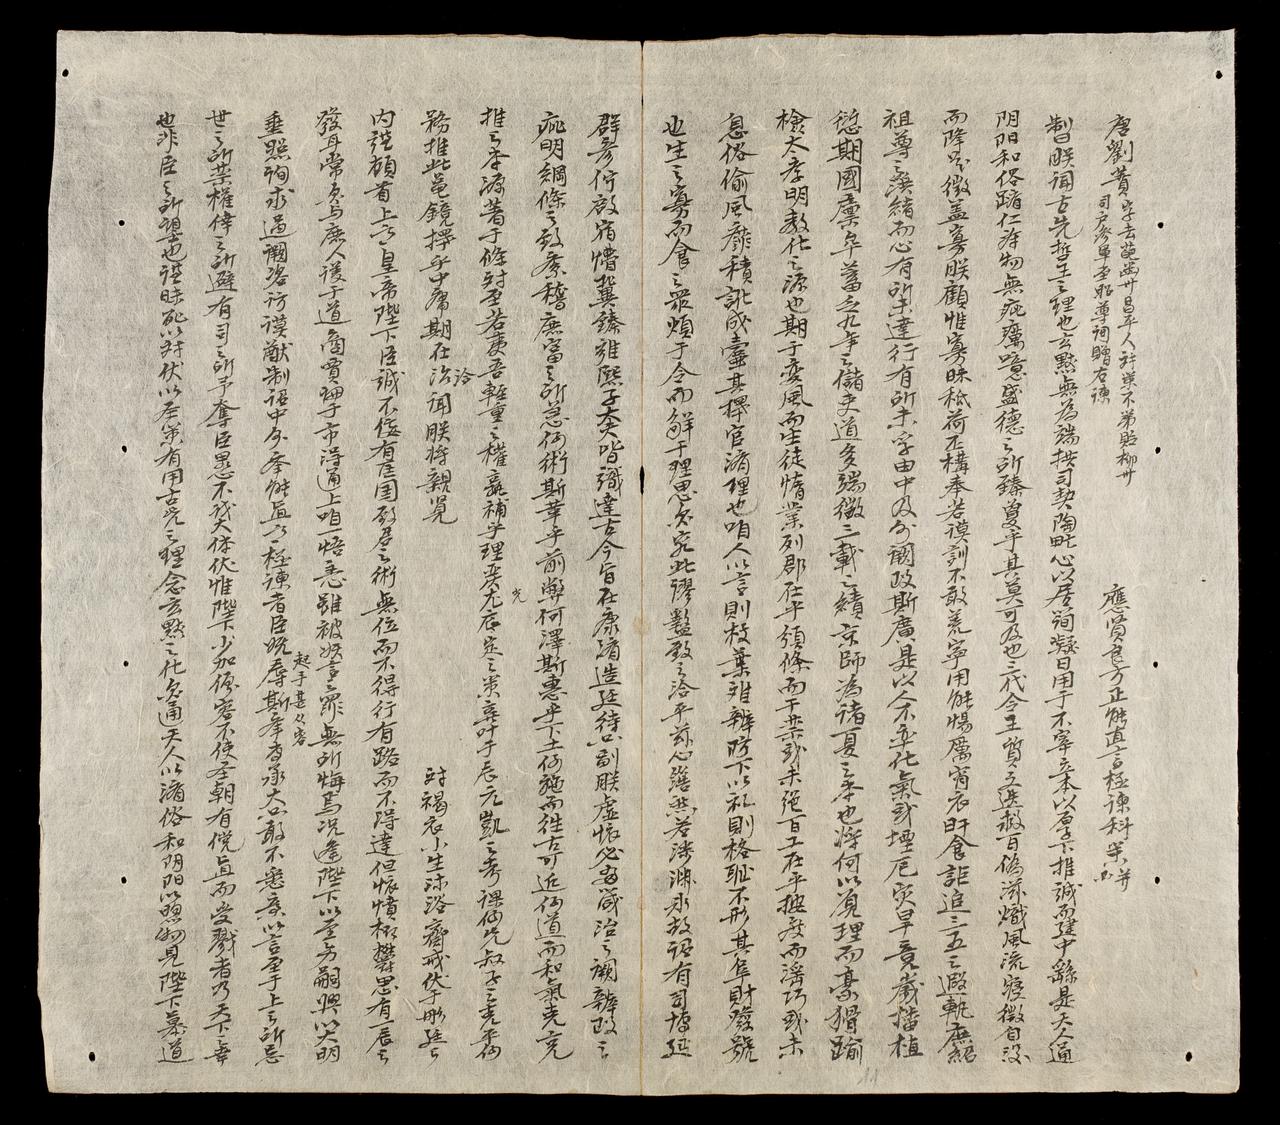 唐劉蕡 字去華幽州昌平人對策不第貶柳州司戶參軍至昭尊詞贈右諫 應賢良方正能直言極諫科策并
制曰朕聞古先哲王之理也玄默無為端拱司契陶甿心以居簡凝日用于不宰立本以厚下推誠而建中繇是天人通
阴阳和俗躋仁壽物無疵癘噫盛德之所臻夐乎其莫可及也三代令王質文迭救百偽滋熾風流寖微自漢
而降足徵盖寡朕顧惟寡昧祗荷丕構奉若謨訓不敢荒寧用能惕厲宵衣旰食詎追三五之遐軌庶紹
祖尊之鴻緒而心有所未達行有所未孚由中及外闕政斯廣是以人不率化氣或堙厄灾旱竟歲播植
愆期國廩罕蓄乏九年之儲吏道多端微三載之績京師為諸夏之本也将何以覌理而豪猾踰
檢太李明教化之源也期于变風而生徒惰業列郡在乎頒條而干禁或未绝百工在乎按度而滛巧或未
息俗偷風靡積訛成蠹其擇官濟理也咱人以言則枝葉难辨防下以礼則格耻不形其阜財發號
也生之寡而食之衆煩于令而鮮于理思所究此謬盭致之洽平茲心浩然若涉渊冰故詔有司博延
群彥佇啟宿懵冀臻雍熙子大夫皆識達古今旨在康濟造廷待问副朕虚怀必当箴治之阙辨政之
疵明綱條之致紊稽庶富之所急何術斯革乎前弊何澤斯惠乎下土何施而徃古可近何道而和氣克充
推之本源著于條对至若夷吾輕重之權孰補乎理嚴尤底定之策孰叶于辰元凱之考課何先叔子之克平何
務推此龜鏡擇乎中庸期在洽闻朕将親覧 对褐衣小生沐浴齋戒伏于彤廷之
内謹頓首上言皇帝陛下臣誠不佞有匡囯致君之術無位而不得行有路而不得達但怀憤樹欝思有一辰之
發耳常欲与庶人議于道商賈謗于市得通上咱一悟悬雖被妖言之罪無所悔焉况逢陛下以至明嗣興以大明
垂照詢求過阙咨访謨猷制诏中外舉能直言極諫者臣既辱斯举專承大问敢不悉意以言至于上之所忌
世之所禁權倖之所避有司之所予奪臣愚不识大体伏惟陛下少加優容不使圣朝有傥直而受戮者乃天下之幸
也非臣之所望也谨昧死以对伏以奉策有用古先之理念玄默之化欲通天人以濟俗和阴阳以煦物見陛下慕道